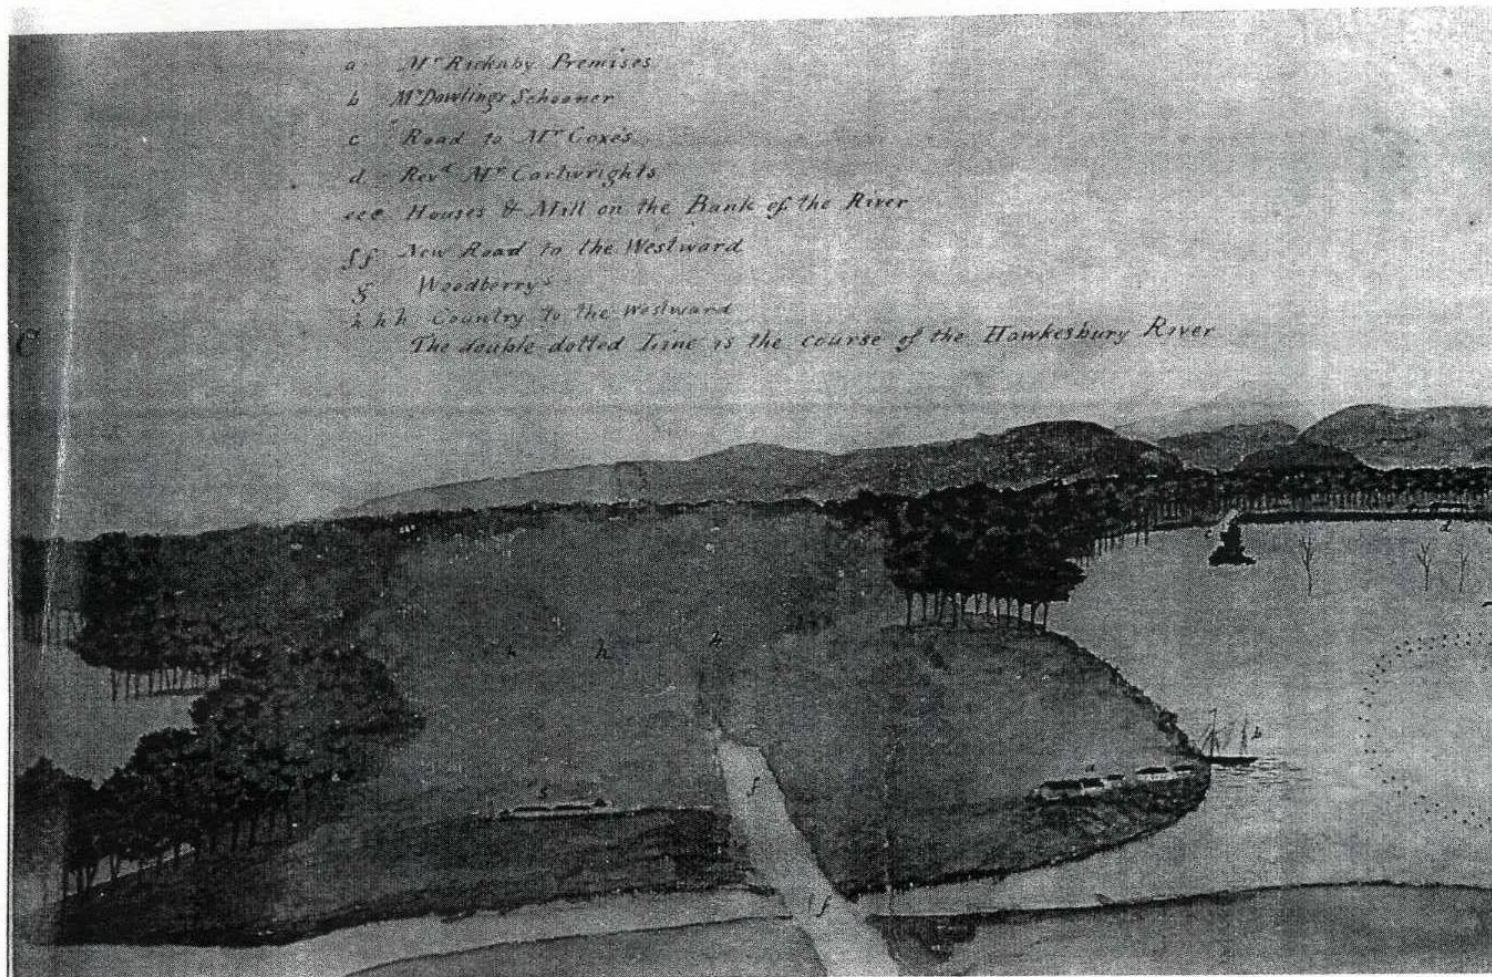 a Mr Rickaby Premises
b Mr Dowlings Schooner
c Road to Mr Coxes
d Revd Mr Cartwrights
eee Houses & Mill on the Bank of the River
ff New Road to the Westward
g Woodberrys
hhh Country to the Westward
The double dotted Line is the course of the Hawkesbury River
C
c
d
h h h
b
f
a
g
f